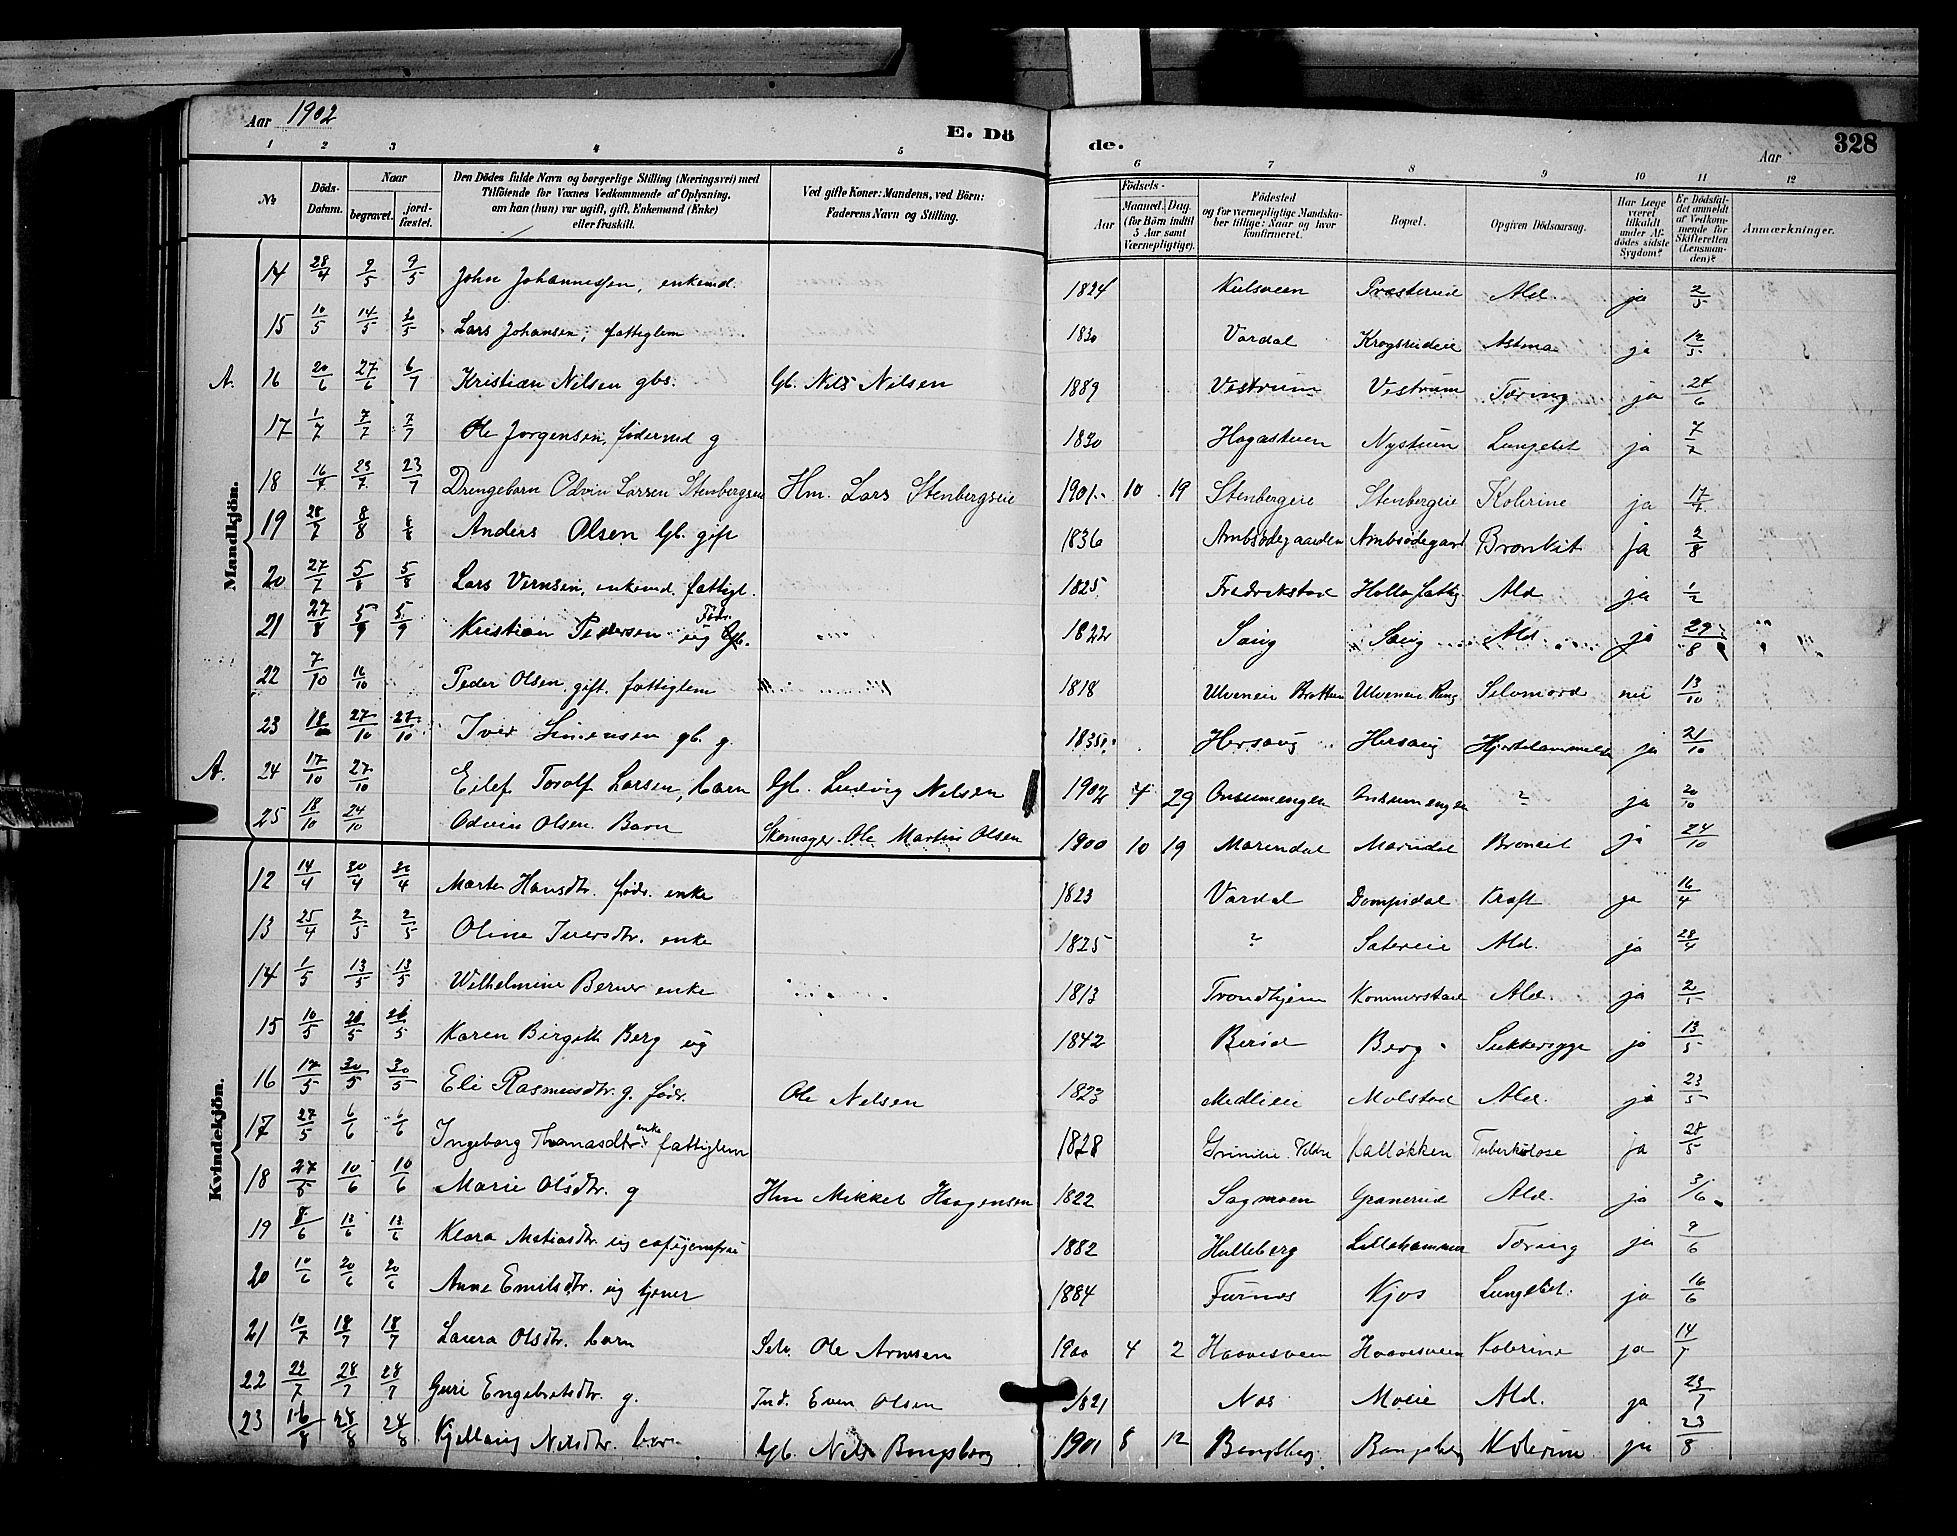 Aar 1902
E. Dö
de.
Aar
328
1 2 3 4 5 6 7 8 9 10 11 12
№
Döds-Datum.
Naar
begravet.
jord-fæstet.
Den Dödes fulde Navn og borgerlige Stilling (Næringsvei) med
Tilföiende for Voxnes Vedkommende af Oplysning,
om han (hun) var ugift, gift, Enkemand (Enke)
eller fraskilt.
Ved gifte Koner: Mandens, ved Börn:
Faderens Navn og Stilling.
Födsels-
Aar
Maaned. Dag.
(for Börn indtil
5 Aar samt
Værnepligtige).
Födested
og for værnepligtige Mandska-
ber tillige: Naar og hvor
konfirmeret.
Bopæl.
Opgiven Dödsaarsag.
Har Læge
været
tilkaldt
under Af-
dödes sidste
Sygdom?
Er Dödsfal-
det anmeldt
af Vedkom-
mende for
Skifteretten
(Lensman-
den)?
Anmærkninger.
Mandkjön.
14 28/4 9/5 9/5 John Johannessen, enkemd. 1824 Præsterud Ald. ja 2/5
15 10/5 14/5 Lars Johansen, fattiglem 1830 Vardal Krogsrudeie Astma ja 12/5
A. 16 20/6 27/6 6/7 Kristian Nilsen gbs. Gb. Nils Nilsen 1889 Vestrum Vestrum Tæring ja
17 1/7 7/7 7/7 Ole Jorgensen, föderud g 1830 Nystuen Lungebet ja 7/7
18 16/7 23/7 23/7 Drengebarn Odvin Larsen Stenbergseie Hm. Lars Stenbergseie 1901 10 19 Stenbergeie Stenbergeie Kolerine ja 17/7
19 28/7 8/8 8/8 Anders Olsen Gb. gift 1836 Bronkit ja 2/8
20 27/7 5/8 5/8 Lars enkemd. fattigl. 1825 Fredrikstad Ald ja
21 27/8 5/9 5/9 Kristian Pedersen ug Födr. Gb. 1822 Saug Saug Ald. ja 29/8
22 7/10 16/10 Peder Olsen, gift. fattiglem 1818 Selvmord nei 13/10
23 27/10 27/10 Iver Simensen gb. g. 1835 Hersaug Hersaug ja 21/10
A. 24 17/10 27/10 Eilef Torolf Larsen, barn Gb. Ludvig Nilsen 1902 4 29 Onsumengen Onsumengen ? ja 20/10
25 18/10 24/10 Odvin Olsen. Barn Skomager. Ole Martin Olsen 1900 10 19 Marendal Marndal ja 24/10
Kvindekjön.
12 14/4 30/4 30/4 Marte Hansdtr. födr. enke 1823 Vardal Kræft ja 16/4
13 25/4 2/5 2/5 Oline Iversdtr. enke 1825 ? Ald. ja 28/4
14 1/5 13/5 13/5 Wilhelmine Berner enke 1813 Trondhjem Ald. ja
15 10/5 Karen Birgitte Berg ug 1842 Berg Sukkersyge ja 13/5
16 17/5 30/5 30/5 Eli Rasmusdtr. g. födr. Ole Nelsen 1823 Molstad Ald. ja 23/5
17 27/5 6/6 6/6 Ingeborg Thomasdtr. enke fattiglem 1828 Kalløkken Tuberkolose ja 28/5
18 27/5 10/6 10/6 Marie Olsdtr. g Hm Mikkel Haagensen 1822 Sagmoen Granerud Ald. ja 3/6
19 8/6 13/6 13/6 Klara Matiasdtr. ug 1882 Hulleberg Lillehammer Tæring ja 9/6
20 10/6 20/6 20/6 Anne Emilsdtr. ug tjener 1884 Furnes Kjos Lungebet. ja 16/6
21 10/7 18/7 18/7 Laura Olsdtr. barn Selv. Ole 1900 4 2 Haavesveen Haavesveen Kolerine ja 14/7
22 22/7 28/7 28/7 Guri Engebretsdtr. g. Ind. Even Olsen 1821 Nes Moeie Ald. ja 23/7
23 16/8 24/8 Kjellaug Nilsdtr. barn Gb. Nils Bangsberg 1901 8 12 Bangsberg Bangsberg Kolerine ja 23/8